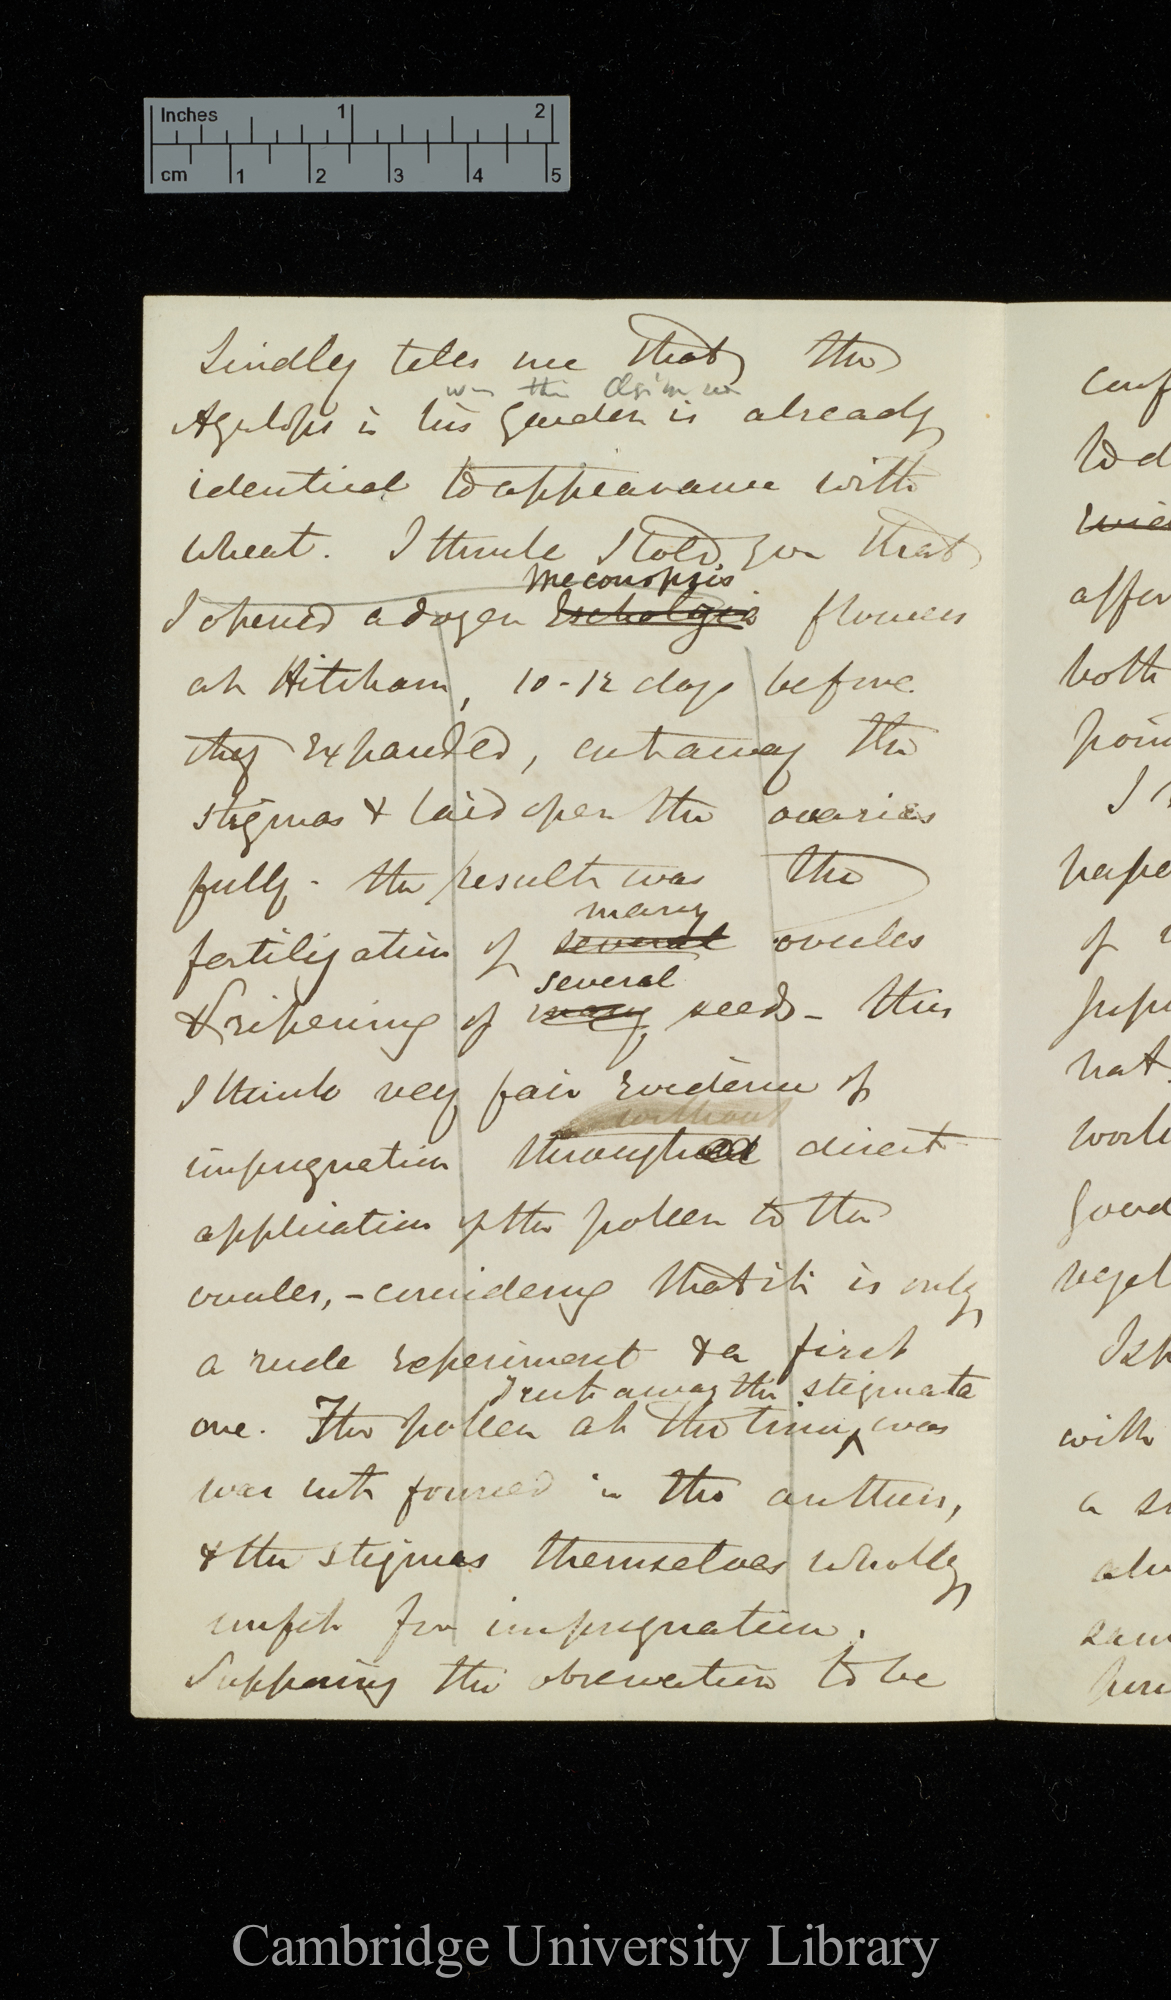 Inches 1 2
cm 1 2 3 4 5
Lindley tells me that the
was this
Ægilops in his Garden is already
identical to appearance with
wheat. I think I told you that
Meconopsis
I opened a dozen Escholzia flowers
at Hitcham, 10-12 days before
they expanded, cut away the
stigmas & laid open the ovaries
fully. the result was the
many
fertilization of several ovules
several
& ripening of many seeds - this
I think very fair evidence of
without
impregnation through direct
application of the pollen to the
ovules, - considering that it is only
a rude experiment & a first
I cut away the stigmata
one. The pollen at the time was
was not formed in the anthers,
& the stigmas themselves wholly
unfit for impregnation.
Supposing the observation to be
conf
to d
affor
both
poin
I
pape
of
pup
nat
work
good
veget
with
a
also
same
Cambridge University Library